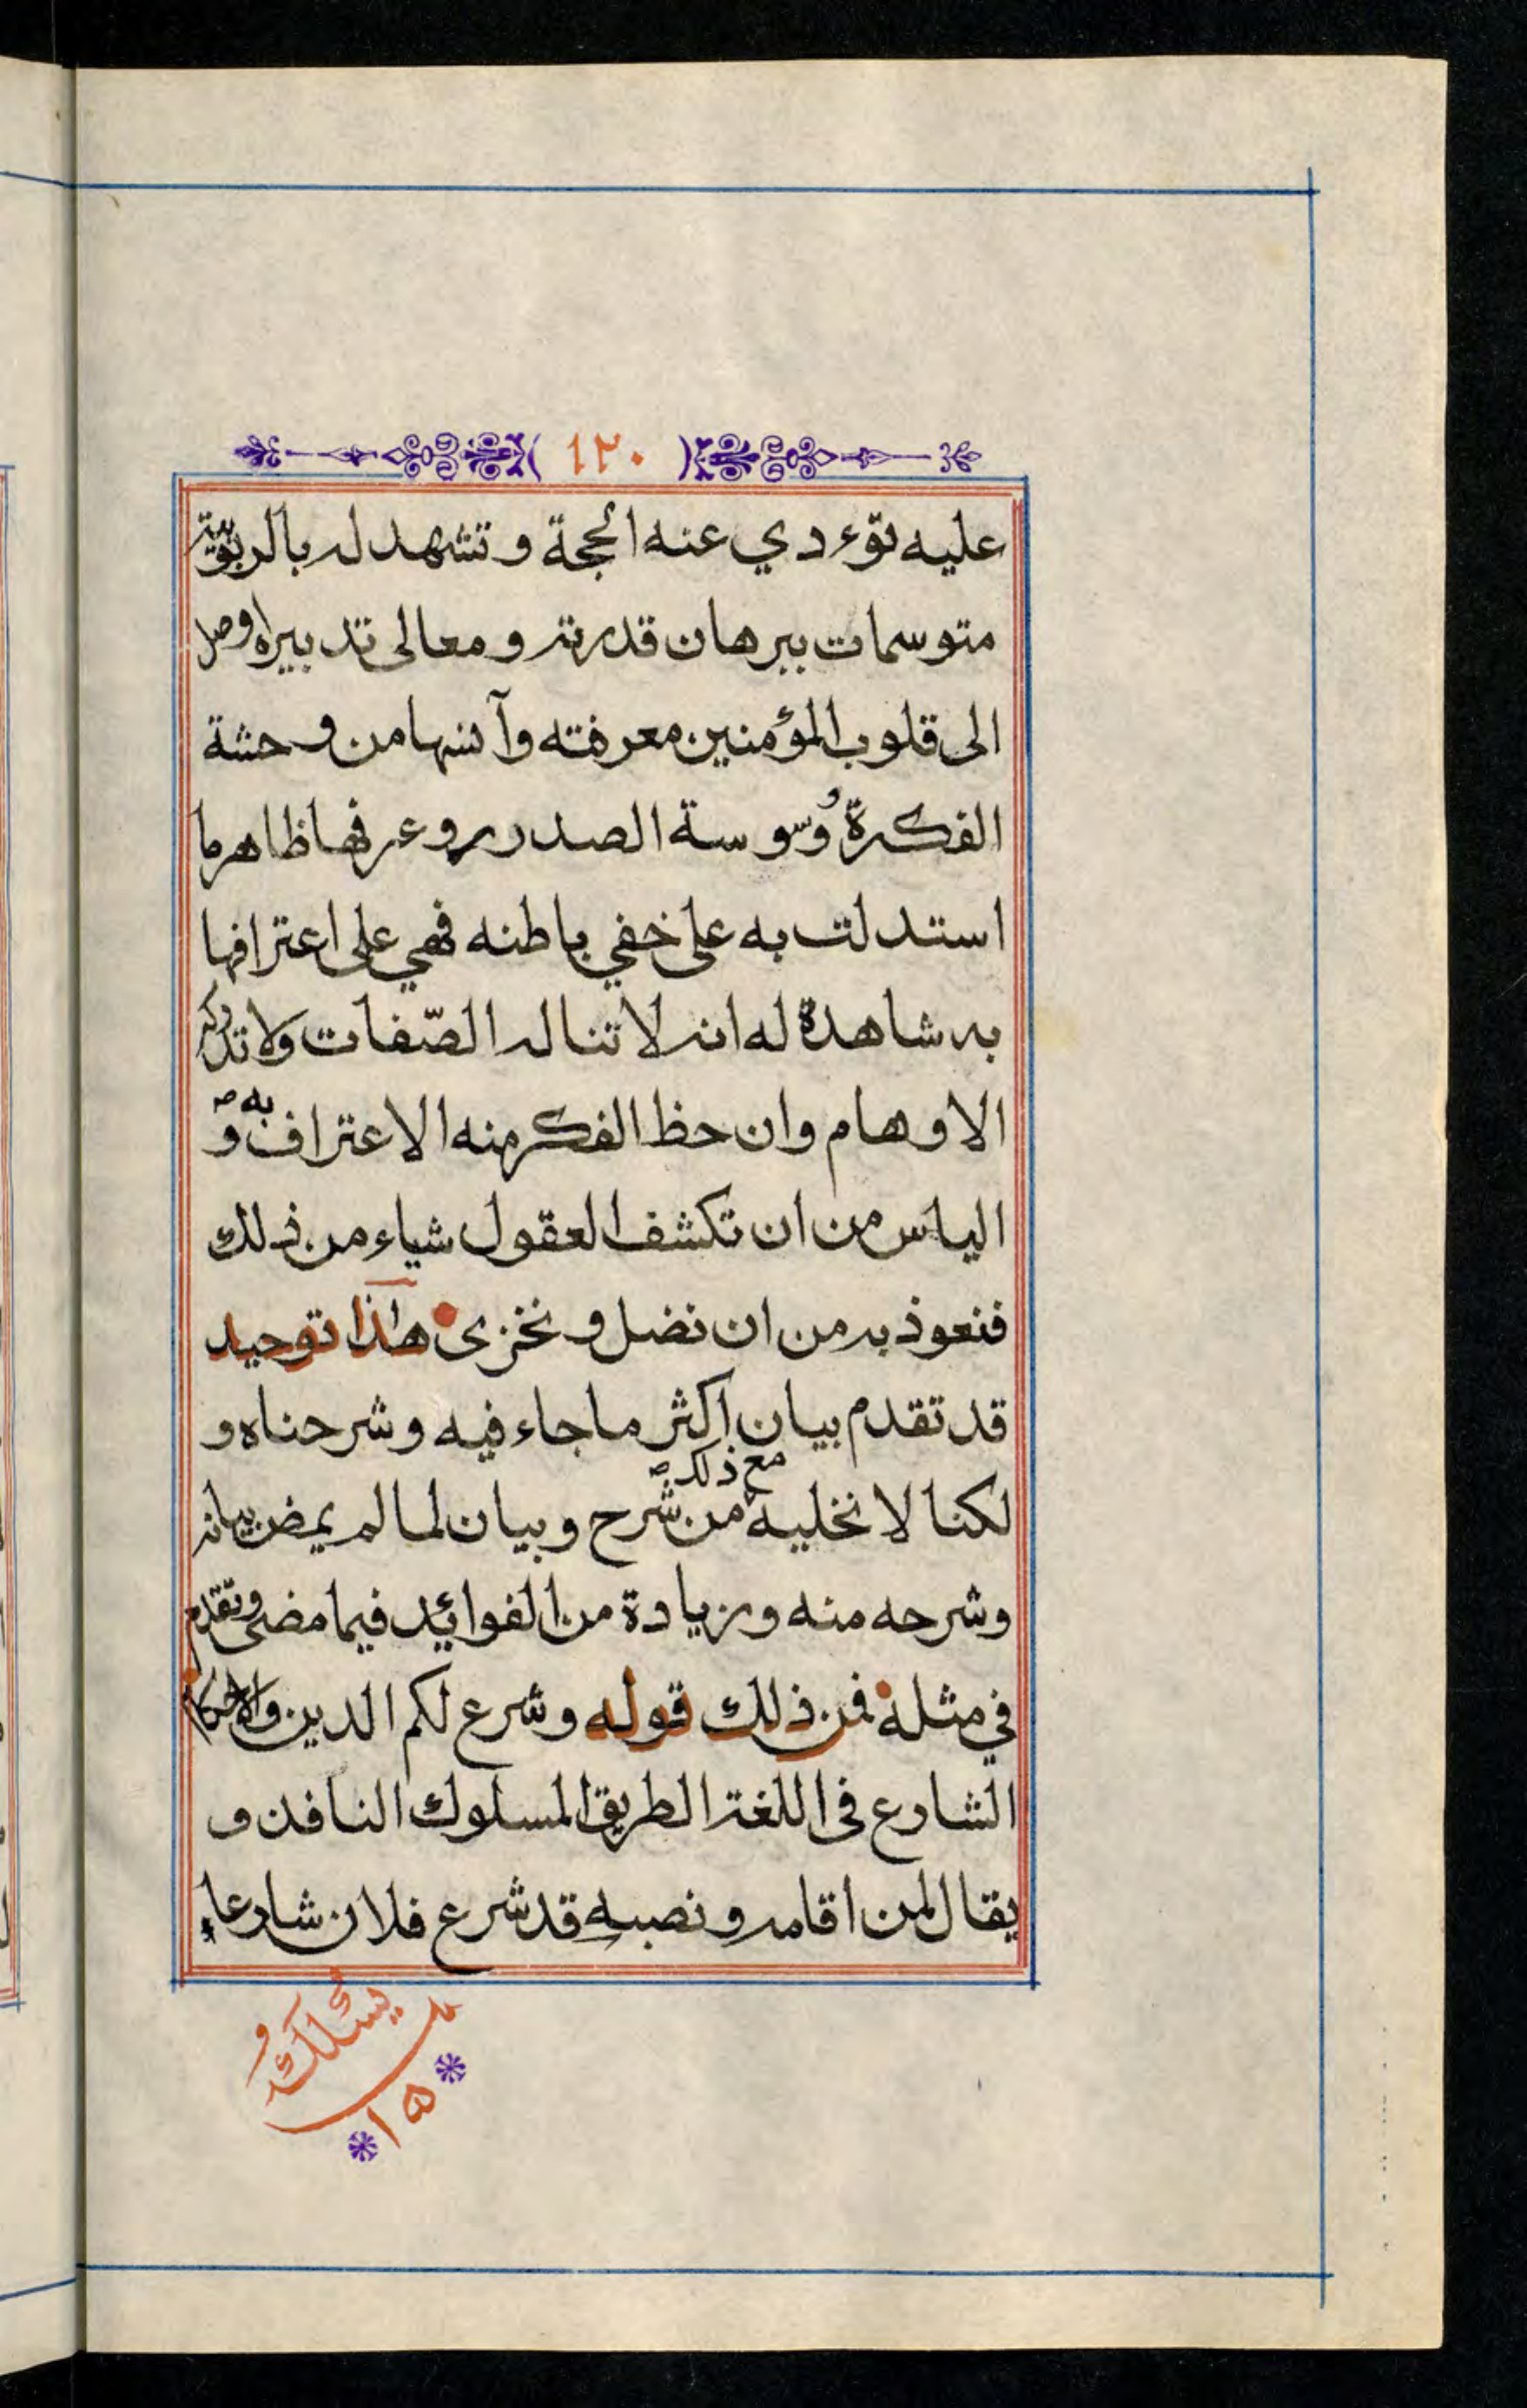 ( ١٢٠ )
عليه توءدي عنه الحجة وتشهد له بالربوبية
متوسمات ببرهان قدرته ومعالى تدبيراه وصل
الى قلوب المؤمنين معرفته وآنسها من وحشة
الفكرة وُسوسة الصدر روعرفها ظاهرما
استدلت به على خفي باطنه فهي على اعترافها
به شاهدة له انه لا تناله الصّفات ولا تدركه
الاوهام وان حظ الفكر منه الاعتراف به و
الياس من ان تكشف العقول شياء من ذلك
فنعوذ به من ان نضل ونخزى هذا توحيد
قد تقدم بيان اكثر ما جاء فيه وشرحناه و
لكنا لا نخليه مع ذلك من شرح وبيان لما لم يمض بيانه
وشرحه منه وزيادة من الفوائد فيما مضى وتقدم
في مثله فمن ذلك قوله وشرع لكم الدين والاحكام
الشارع فى اللغة الطريق المسلوك النافد و
يقال لمن اقامه ونصبه قد شرع فلان شارعاء
يسئلك
١٥